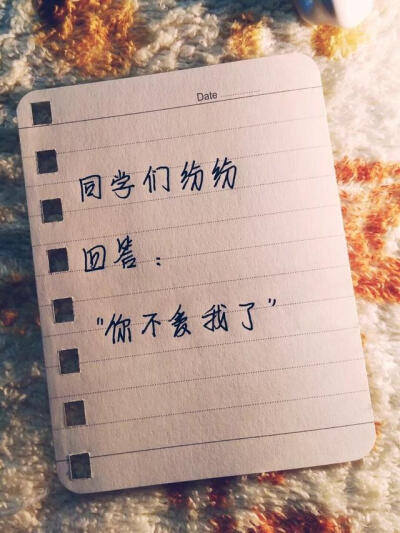 Date
同学们纷纷
回答：
“你不爱我了”